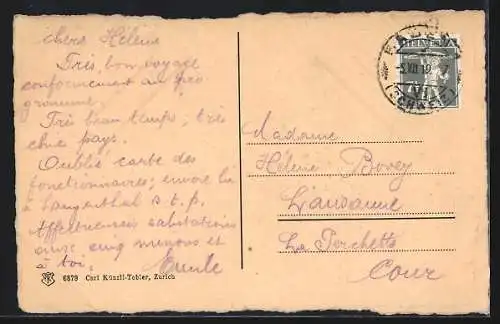 chère Hélène
Très bon voyage
conformément au pro
gramme.
Très beau temps; très
chic pays.
Oublié carte des
fonctionnaires; envoie la
à Langenthal s. t. p.
Affectueuses salutations
aux cinq mignons et
à toi.
Emile
6879 Carl Künzli-Tobler, Zürich
BADEN
HELVETIA
VII
(SCHWEIZ)
Madame
Hélène Bovey
Lausanne
La Perchette
Cour